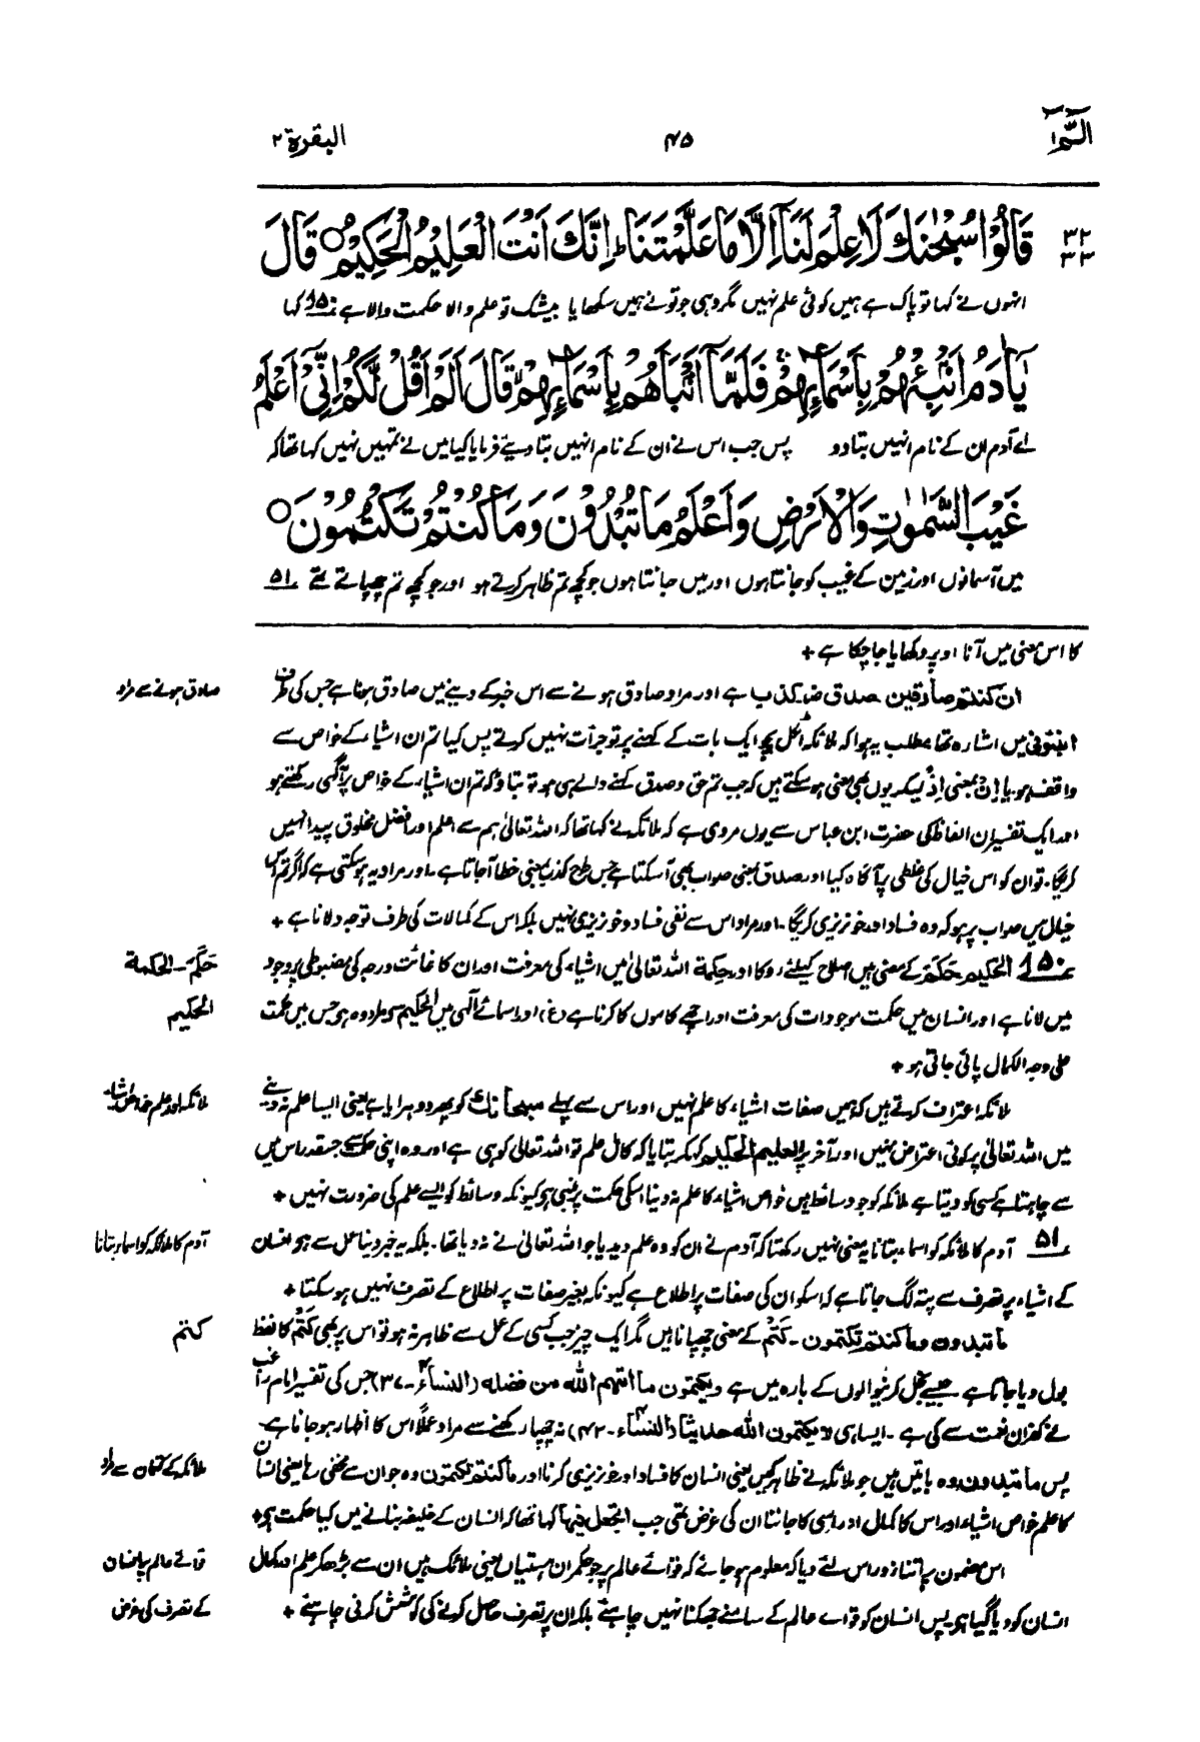 الٓمّٓ ۱
۴۵
البقرة ۲
۳۲
۳۳
قَالُوْا سُبْحٰنَكَ لَا عِلْمَ لَنَآ اِلَّا مَا عَلَّمْتَنَا ؕ اِنَّكَ اَنْتَ الْعَلِيْمُ الْحَكِيْمُ ○ قَالَ
انہوں نے کہا تو پاک ہے ہمیں کوئی علم نہیں مگر وہی جو تو نے ہمیں سکھایا بیشک تو علم والا حکمت والا ہے ۵۰ کہا
يٰٓاٰدَمُ اَنْۢبِئْهُمْ بِاَسْمَآئِهِمْ ۚ فَلَمَّآ اَنْۢبَاَهُمْ بِاَسْمَآئِهِمْ ۙ قَالَ اَلَمْ اَقُلْ لَّكُمْ اِنِّيْٓ اَعْلَمُ
اے آدم ان کے نام انہیں بتا دو پس جب اس نے ان کے نام انہیں بتا دیئے فرمایا کیا میں نے تمہیں نہیں کہا تھا کہ
غَيْبَ السَّمٰوٰتِ وَالْاَرْضِ وَاَعْلَمُ مَا تُبْدُوْنَ وَمَا كُنْتُمْ تَكْتُمُوْنَ ○
میں آسمانوں اور زمین کے غیب کو جانتا ہوں اور میں جانتا ہوں جو کچھ تم ظاہر کرتے ہو اور جو کچھ تم چھپاتے تھے ۵۱
کا اس معنی میں آنا اوپر دکھایا جا چکا ہے +
ان کنتم صادقین صدق ضد کذب ہے اور مراد صادق ہونے سے اس خبر کے دینے میں صادق ہونا ہے جس کی طرف
صادق ہونے سے مراد
انبئونی میں اشارہ تھا مطلب یہ ہوا کہ ملائکہ اٹکل پچو ایک بات کے کہنے پر تو جرأت نہیں کرتے پس کیا تم ان اشیاء کے خواص سے
واقف ہو یا اِنْ بمعنی اِذْ لیکر یوں بھی معنی ہو سکتے ہیں کہ جب تم حق و صدق کہنے والے ہی ہو تو بتاؤ کہ تم ان اشیاء کے خواص پر آگہی رکھتے ہو
اور ایک تفسیر ان الفاظ کی حضرت ابن عباس سے یوں مروی ہے کہ ملائکہ نے کہا تھا کہ اللہ تعالیٰ ہم سے اعلم اور افضل مخلوق پیدا نہیں
کریگا۔ تو ان کو اس خیال کی غلطی پر آگاہ کیا اور صدق بمعنی صواب بھی آ سکتا ہے جس طرح کذب بمعنی خطا آ جاتا ہے۔ اور مراد یہ ہو سکتی ہے کہ اگر تم اس
خیال میں صواب پر ہو کہ وہ فساد اور خونریزی کریگا۔ اور مراد اس سے نفی فساد و خونریزی نہیں بلکہ اس کے کمالات کی طرف توجہ دلانا ہے +
۵۰ الحکیم حَکَمَ کے معنی ہیں اصلاح کیلئے روکا اور حکمة اللہ تعالیٰ میں اشیاء کی معرفت اور ان کا غائت درجہ کی مضبوطی پر وجود
حَکَمَ۔ الحکمة
میں لانا ہے اور انسان میں حکمت موجودات کی معرفت اور اچھے کاموں کا کرنا ہے (غ) اور اسمائے الٰہی میں الحکیم سے مراد وہ ہے جس میں حکمت
الحکیم
علیٰ وجہ الکمال پائی جاتی ہو +
ملائکہ اعتراف کرتے ہیں کہ ہمیں صفات اشیاء کا علم نہیں اور اس سے پہلے سبحانک کو پھر دوہرایا ہے یعنی ایسا علم نہ دینے
ملائکہ اور علم خواص اشیاء
میں اللہ تعالیٰ پر کوئی اعتراض نہیں اور آخر پر العلیم الحکیم کہکر بتایا کہ کامل علم تو اللہ تعالیٰ کو ہی ہے اور وہ اپنی حکمت سے جسقدر اس میں
سے چاہتا ہے کسی کو دیتا ہے ملائکہ کو جو وسائط ہیں خواص اشیاء کا علم نہ دینا اسکی حکمت پر مبنی ہے کیونکہ وسائط کو ایسے علم کی ضرورت نہیں +
۵۱ آدم کا ملائکہ کو اسماء بتانا یہ معنی نہیں رکھتا کہ آدم نے ان کو وہ علم دیدیا جو اللہ تعالیٰ نے نہ دیا تھا۔ بلکہ یہ خبر دینا عمل سے ہے انسان
آدم کا ملائکہ کو اسماء بتانا
کے اشیاء پر تصرف سے پتہ لگ جاتا ہے کہ اسکو ان کی صفات پر اطلاع ہے کیونکہ بغیر صفات پر اطلاع کے تصرف نہیں ہو سکتا +
ما تبدون وما کنتم تکتمون۔ کَتْم کے معنی چھپانا ہیں مگر ایک چیز جب کسی کے عمل سے ظاہر نہ ہو تو اس پر بھی کَتْم کا لفظ
کتم
بول دیا جاتا ہے جیسے بخل کرنیوالوں کے بارہ میں ہے ویکتمون ما اٰتٰہم اللہ من فضلہ (النساء ۔ ۳۷) جس کی تفسیر امام راغب
نے کفران نعمت سے کی ہے ۔ ایسا ہی ولا یکتمون اللہ حدیثا (النساء ۔ ۴۲) نہ چھپا رکھنے سے مراد عملاً اس کا اظہار ہو جانا ہے
پس ما تبدون وہ باتیں ہیں جو ملائکہ نے ظاہر کیں یعنی انسان کا فساد اور خونریزی کرنا اور ما کنتم تکتمون وہ جو ان سے مخفی رہا یعنی انسان
ملائکہ کے کتمان سے مراد
کا علم خواص اشیاء اور اس کا کمال اور اسی کا جاننا ان کی غرض تھی جب اتجعل فیہا کہا تھا کہ انسان کے خلیفہ بنانے میں کیا حکمت ہے +
اس مضمون پر اتنا زور اس لئے دیا کہ معلوم ہو جائے کہ قوائے عالم پر جو حکمران ہستیاں یعنی ملائک ہیں ان سے بڑھکر علم اور کمال
قوائے عالم پر انسان
انسان کو دیا گیا ہے پس انسان کو قوائے عالم کے سامنے جھکنا نہیں چاہئے بلکہ ان پر تصرف حاصل کرنے کی کوشش کرنی چاہئے +
کے تصرف کی غرض